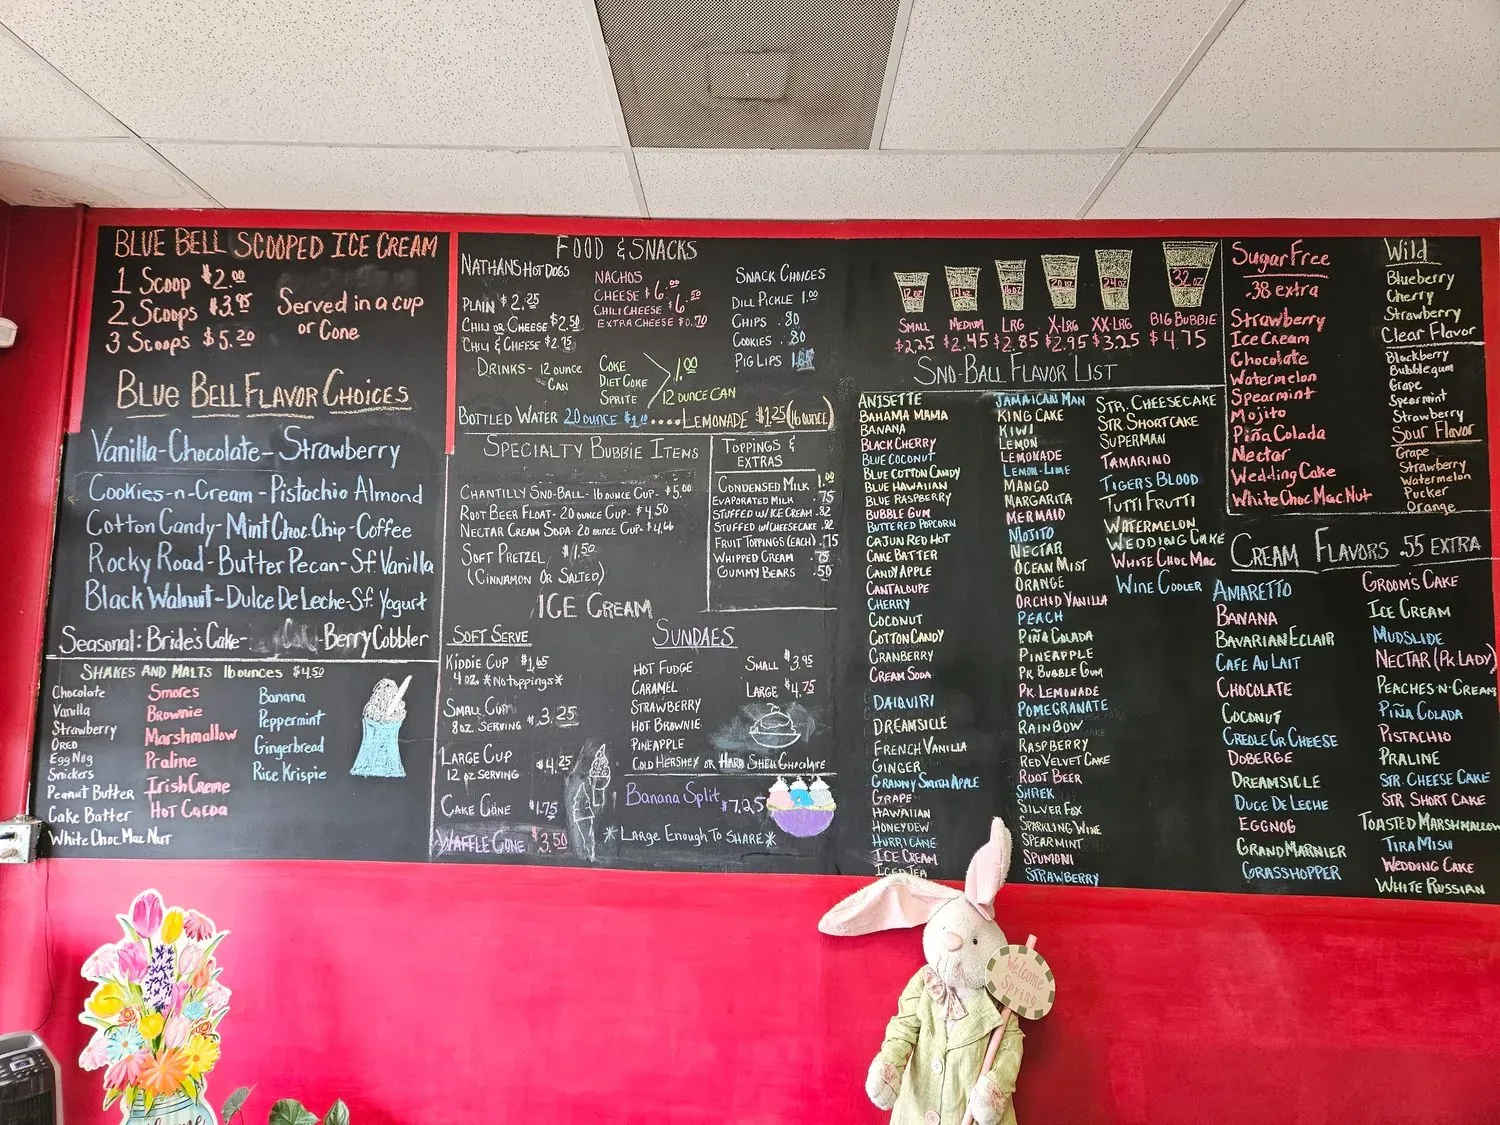 BLUE BELL SCOOPED ICE CREAM
1 Scoop $2.00
2 Scoops $3.95
3 Scoops $5.20
Served in a cup
or Cone
BLUE BELL FLAVOR CHOICES
Vanilla-Chocolate-Strawberry
Cookies-n-Cream-Pistachio Almond
Cotton Candy-Mint Choc. Chip-Coffee
Rocky Road-Butter Pecan-Sf. Vanilla
Black Walnut-Dulce De Leche-Sf. Yogurt
Seasonal: Bride's Cake-
-Berry Cobbler
SHAKES AND MALTS 16 ounces $4.50
Chocolate
Vanilla
Strawberry
OREO
Egg Nog
Snickers
Peanut Butter
Cake Batter
White Choc. Mac. Nut
Smores
Brownie
Marshmallow
Praline
Irish Creme
Hot Cocoa
Banana
Peppermint
Gingerbread
Rice Krispie
FOOD & SNACKS
NATHANS HOT DOGS
PLAIN $2.25
CHILI OR CHEESE $2.50
CHILI & CHEESE $2.75
NACHOS
CHEESE $6.00
CHILI CHEESE $6.50
EXTRA CHEESE $0.70
SNACK CHOICES
DILL PICKLE 1.00
CHIPS .80
COOKIES .80
PIG LIPS
DRINKS- 12 OUNCE
CAN
COKE
DIET COKE
SPRITE
1.00
12 OUNCE CAN
BOTTLED WATER 20 OUNCE ....LEMONADE $1.25 (16 OUNCE)
SPECIALTY BUBBIE ITEMS
CHANTILLY SNO-BALL- 16 OUNCE CUP- $5.00
ROOT BEER FLOAT- 20 OUNCE CUP- $4.50
NECTAR CREAM SODA- 20 OUNCE CUP- $4.66
SOFT PRETZEL $1.50
(CINNAMON OR SALTED)
TOPPINGS &
EXTRAS
CONDENSED MILK 1.00
EVAPORATED MILK .75
STUFFED W/ICE CREAM .82
STUFFED W/CHEESECAKE .82
FRUIT TOPPINGS (EACH) .75
WHIPPED CREAM .75
GUMMY BEARS .50
ICE CREAM
SOFT SERVE
KIDDIE CUP $1.65
4 OZ. *No toppings*
SMALL CUP
8 OZ. SERVING $3.25
LARGE CUP
12 OZ SERVING $4.25
CAKE CONE $1.75
WAFFLE CONE $3.50
SUNDAES
HOT FUDGE
CARAMEL
STRAWBERRY
HOT BROWNIE
PINEAPPLE
COLD HERSHEY OR HARD SHELL CHOCOLATE
SMALL $3.95
LARGE $4.75
Banana Split $7.25
*LARGE ENOUGH TO SHARE*
12 OZ
14 OZ
16 OZ
20 OZ
24 OZ
32 OZ
SMALL
MEDIUM
LRG
X-LRG
XX-LRG
BIG BUBBIE
$2.25
$2.45
$2.85
$2.95
$3.25
$4.75
SNO-BALL FLAVOR LIST
ANISETTE
BAHAMA MAMA
BANANA
BLACK CHERRY
BLUE COCONUT
BLUE COTTON CANDY
BLUE HAWAIIAN
BLUE RASPBERRY
BUBBLE GUM
BUTTERED POPCORN
CAJUN RED HOT
CAKE BATTER
CANDY APPLE
CANTALOUPE
CHERRY
COCONUT
COTTON CANDY
CRANBERRY
CREAM SODA
DAIQUIRI
DREAMSICLE
FRENCH VANILLA
GINGER
GRANNY SMITH APPLE
GRAPE
HAWAIIAN
HONEYDEW
HURRICANE
ICE CREAM
ICED TEA
JAMAICAN MAN
KING CAKE
KIWI
LEMON
LEMONADE
LEMON-LIME
MANGO
MARGARITA
MERMAID
MOJITO
NECTAR
OCEAN MIST
ORANGE
ORCHID VANILLA
PEACH
PIÑA COLADA
PINEAPPLE
PK BUBBLE GUM
PK LEMONADE
POMEGRANATE
RAINBOW
RASPBERRY
RED VELVET CAKE
ROOT BEER
SHREK
SILVER FOX
SPARKLING WINE
SPEARMINT
SPUMONI
STRAWBERRY
STR. CHEESECAKE
STR. SHORTCAKE
SUPERMAN
TAMARIND
TIGERS BLOOD
TUTTI FRUTTI
WATERMELON
WEDDING CAKE
WHITE CHOC MAC
WINE COOLER
Sugar Free
.38 extra
Strawberry
Ice Cream
Chocolate
Watermelon
Spearmint
Mojito
Piña Colada
Nectar
Wedding Cake
White Choc. Mac. Nut
Wild
Blueberry
Cherry
Strawberry
Clear Flavor
Blackberry
Bubblegum
Grape
Spearmint
Strawberry
Sour Flavor
Grape
Strawberry
Watermelon
Pucker
Orange
CREAM FLAVORS .55 EXTRA
AMARETTO
BANANA
BAVARIAN ECLAIR
CAFE AU LAIT
CHOCOLATE
COCONUT
CREOLE CR. CHEESE
DOBERGE
DREAMSICLE
DUCE DE LECHE
EGGNOG
GRAND MARNIER
GRASSHOPPER
GROOM'S CAKE
ICE CREAM
MUDSLIDE
NECTAR (PK LADY)
PEACHES-N-CREAM
PIÑA COLADA
PISTACHIO
PRALINE
STR. CHEESE CAKE
STR. SHORT CAKE
TOASTED MARSHMALLOW
TIRA MISU
WEDDING CAKE
WHITE RUSSIAN
Welcome
Spring